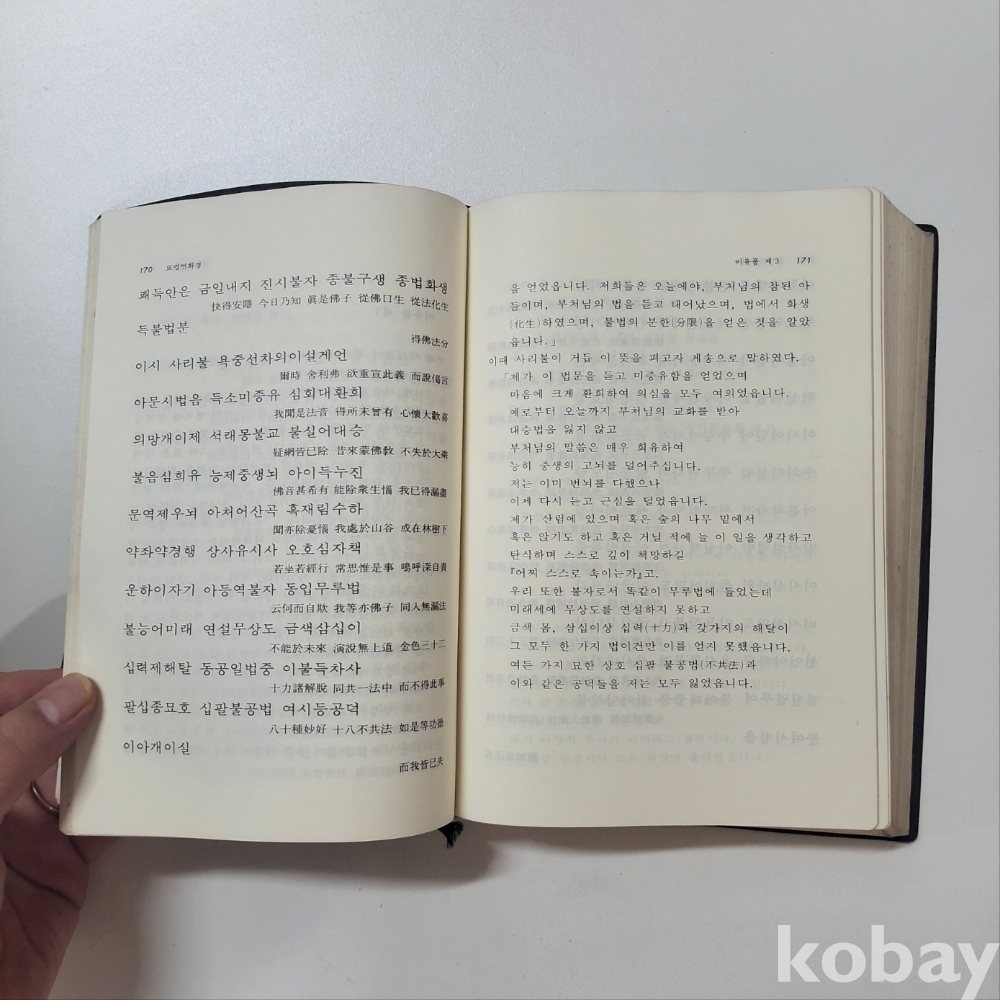 170 묘법연화경
쾌득안은 금일내지 진시불자 종불구생 종법화생
快得安隱 今日乃知 眞是佛子 從佛口生 從法化生
득불법분
得佛法分
이시 사리불 욕중선차의이설게언
爾時 舍利弗 欲重宣此義 而說偈言
아문시법음 득소미증유 심회대환희
我聞是法音 得所未曾有 心懷大歡喜
의망개이제 석래몽불교 불실어대승
疑網皆已除 昔來蒙佛敎 不失於大乘
불음심희유 능제중생뇌 아이득누진
佛音甚希有 能除衆生惱 我已得漏盡
문역제우뇌 아처어산곡 혹재림수하
聞亦除憂惱 我處於山谷 或在林樹下
약좌약경행 상사유시사 오호심자책
若坐若經行 常思惟是事 嗚呼深自責
운하이자기 아등역불자 동입무루법
云何而自欺 我等亦佛子 同入無漏法
불능어미래 연설무상도 금색삼십이
不能於未來 演說無上道 金色三十二
십력제해탈 동공일법중 이불득차사
十力諸解脫 同共一法中 而不得此事
팔십종묘호 십팔불공법 여시등공덕
八十種妙好 十八不共法 如是等功德
이아개이실
而我皆已失
비유품 제3 171
을 얻었읍니다. 저희들은 오늘에야, 부처님의 참된 아
들이며, 부처님의 법을 듣고 태어났으며, 법에서 화생
(化生)하였으며, 불법의 분한(分限)을 얻은 것을 알았
읍니다.」
이때 사리불이 거듭 이 뜻을 펴고자 게송으로 말하였다.
「제가 이 법문을 듣고 미증유함을 얻었으며
마음에 크게 환희하여 의심을 모두 여의었읍니다.
예로부터 오늘까지 부처님의 교화를 받아
대승법을 잃지 않고
부처님의 말씀은 매우 희유하여
능히 중생의 고뇌를 덜어주십니다.
저는 이미 번뇌를 다했으나
이제 다시 듣고 근심을 덜었읍니다.
제가 산림에 있으며 혹은 숲의 나무 밑에서
혹은 앉기도 하고 혹은 거닐 적에 늘 이 일을 생각하고
탄식하며 스스로 깊이 책망하길
『어찌 스스로 속이는가』고.
우리 또한 불자로서 똑같이 무루법에 들었는데
미래세에 무상도를 연설하지 못하고
금색 몸, 삼십이상 십력(十力)과 갖가지의 해탈이
그 모두 한 가지 법이건만 이를 얻지 못했읍니다.
여든 가지 묘한 상호 십팔 불공법(不共法)과
이와 같은 공덕들을 저는 모두 잃었읍니다.
kobay